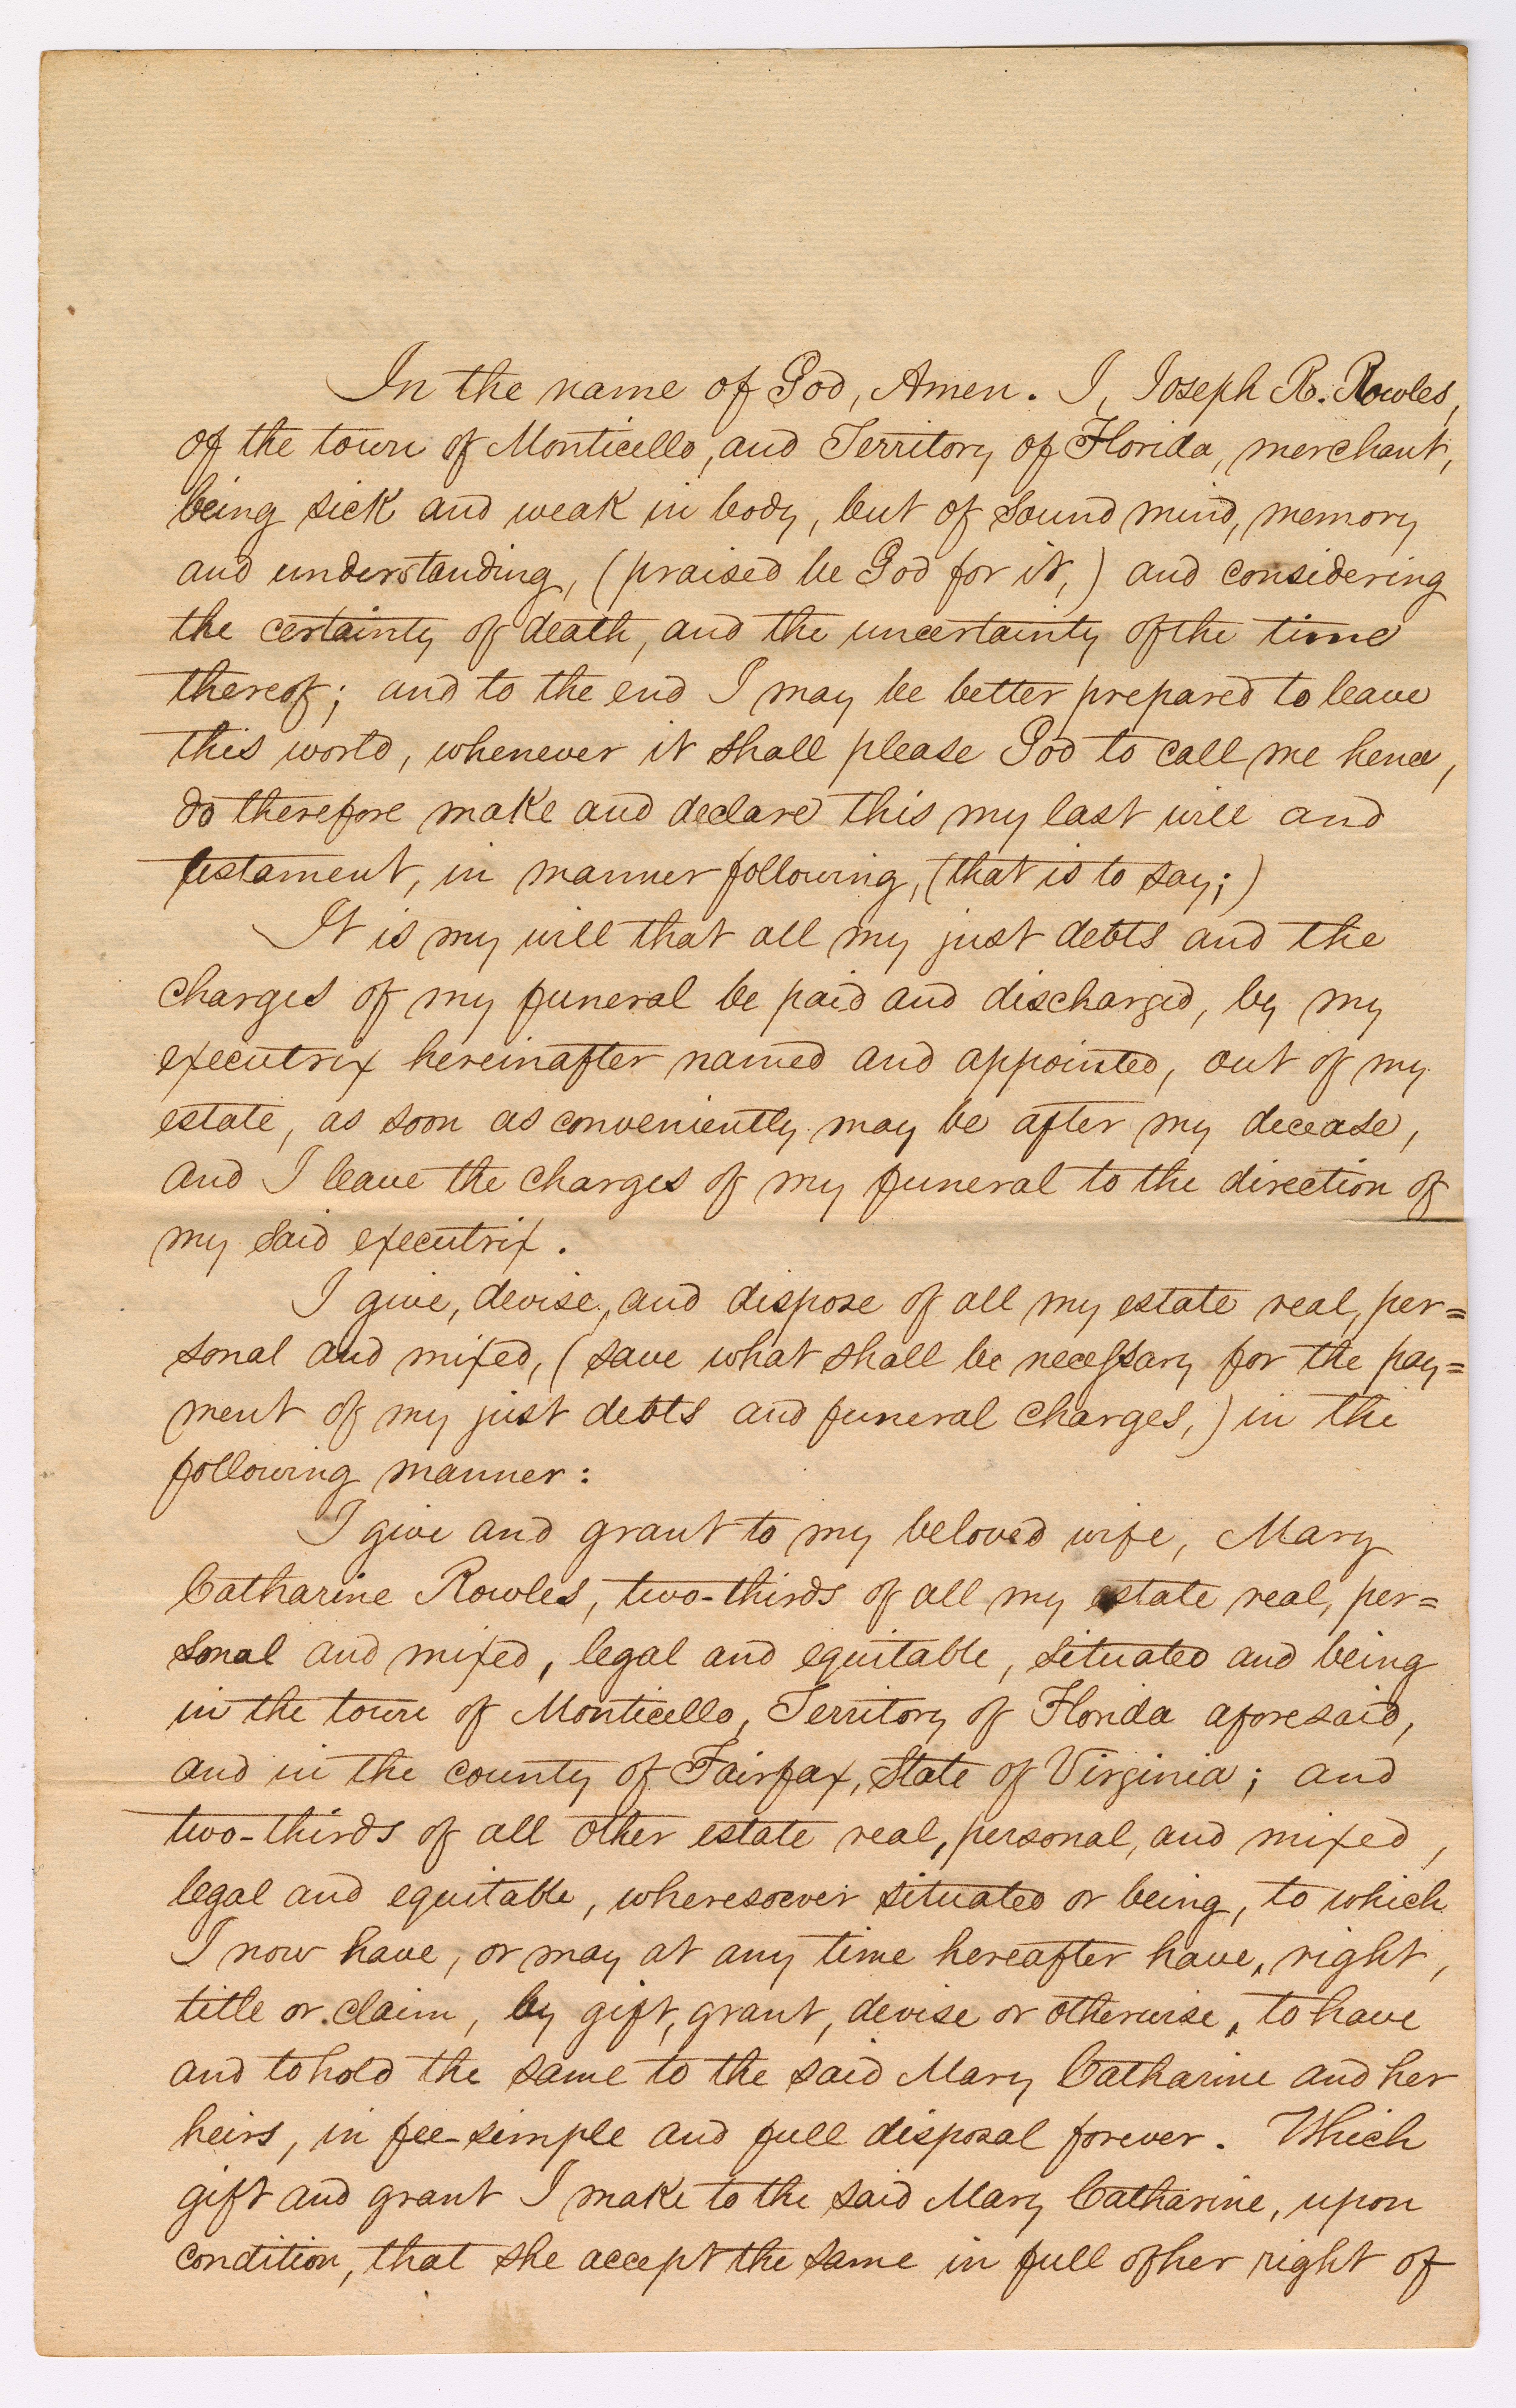 In the name of God, Amen. I, Joseph R. Rowles,
of the town of Monticello, and Territory of Florida, merchant,
being sick and weak in body, but of sound mind, memory
and understanding, (praised be God for it,) and considering
the certainty of death, and the uncertainty of the time
thereof; and to the end I may be better prepared to leave
this world, whenever it shall please God to call me hence,
do therefore make and declare this my last will and
testament, in manner following, (that is to say;)
It is my will that all my just debts and the
charges of my funeral be paid and discharged, by my
executrix hereinafter named and appointed, out of my
estate, as soon as conveniently may be after my decease,
and I leave the charges of my funeral to the direction of
my said executrix.
I give, devise, and dispose of all my estate real, per=
sonal and mixed, (save what shall be necessary for the pay=
ment of my just debts and funeral charges,) in the
following manner:
I give and grant to my beloved wife, Mary
Catharine Rowles, two-thirds of all my estate real, per=
sonal and mixed, legal and equitable, situated and being
in the town of Monticello, Territory of Florida aforesaid,
and in the county of Fairfax, State of Virginia; and
two-thirds of all other estate real, personal, and mixed,
legal and equitable, wheresoever situated or being, to which
I now have, or may at any time hereafter have, right,
title or claim, by gift, grant, devise or otherwise, to have
and to hold the same to the said Mary Catharine and her
heirs, in fee-simple and full disposal forever. Which
gift and grant I make to the said Mary Catharine, upon
condition, that she accept the same in full of her right of